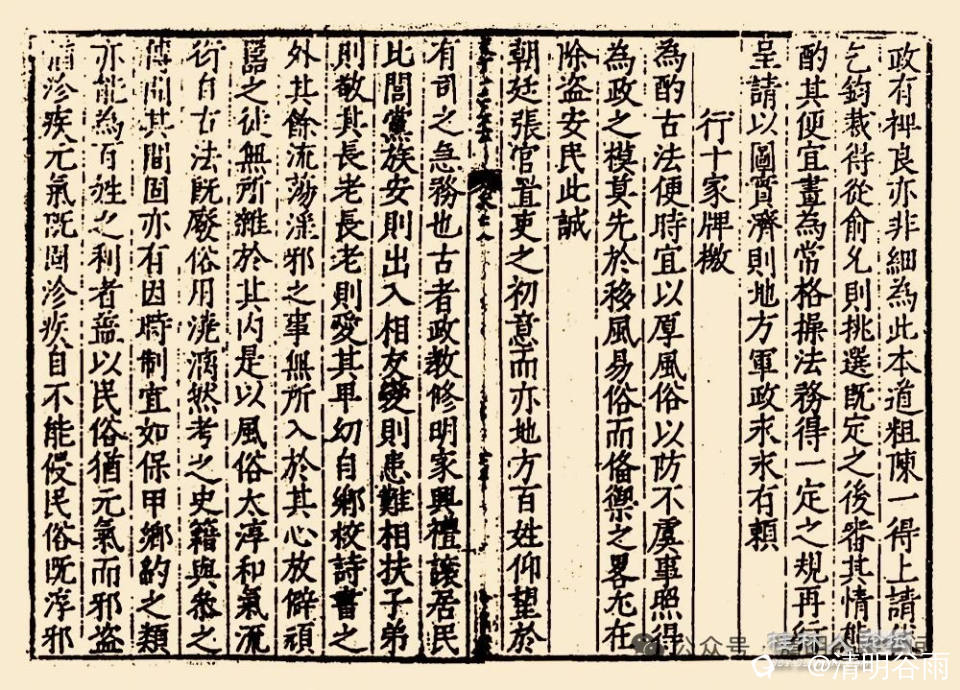 政有裨良亦非細為此本道粗陳一得上請
乞鈞裁得從俞允則挑選既定之後畨其情態
酌其便宜畫為常格操法務得一定之規再行
呈請以圖實濟則地方軍政永永有賴
行十家牌檄
為酌古法便時宜以厚風俗以防不虞事照得
為政之模莫先於移風易俗而俻禦之畧尤在
除盗安民此誠
朝廷張官置吏之初意而亦地方百姓仰望於
有司之急務也古者政教修明家興禮讓居民
比閭黨族安則出入相友變則患難相扶子弟
則敬其長老長老則愛其卑幼自鄉校詩書之
外其餘流蕩淫邪之事無所入於其心放僻頑
嚚之徒無所雜於其内是以風俗太淳和氣流
衍自古法既廢俗用澆漓然考之史籍與叅之
傳聞其間固亦有因時制宜如保甲鄉約之類
亦能為百姓之利者葢以民俗猶元氣而邪盗
猶沴疾元氣既固沴疾自不能侵民俗既淳邪
公众号
@清明谷雨